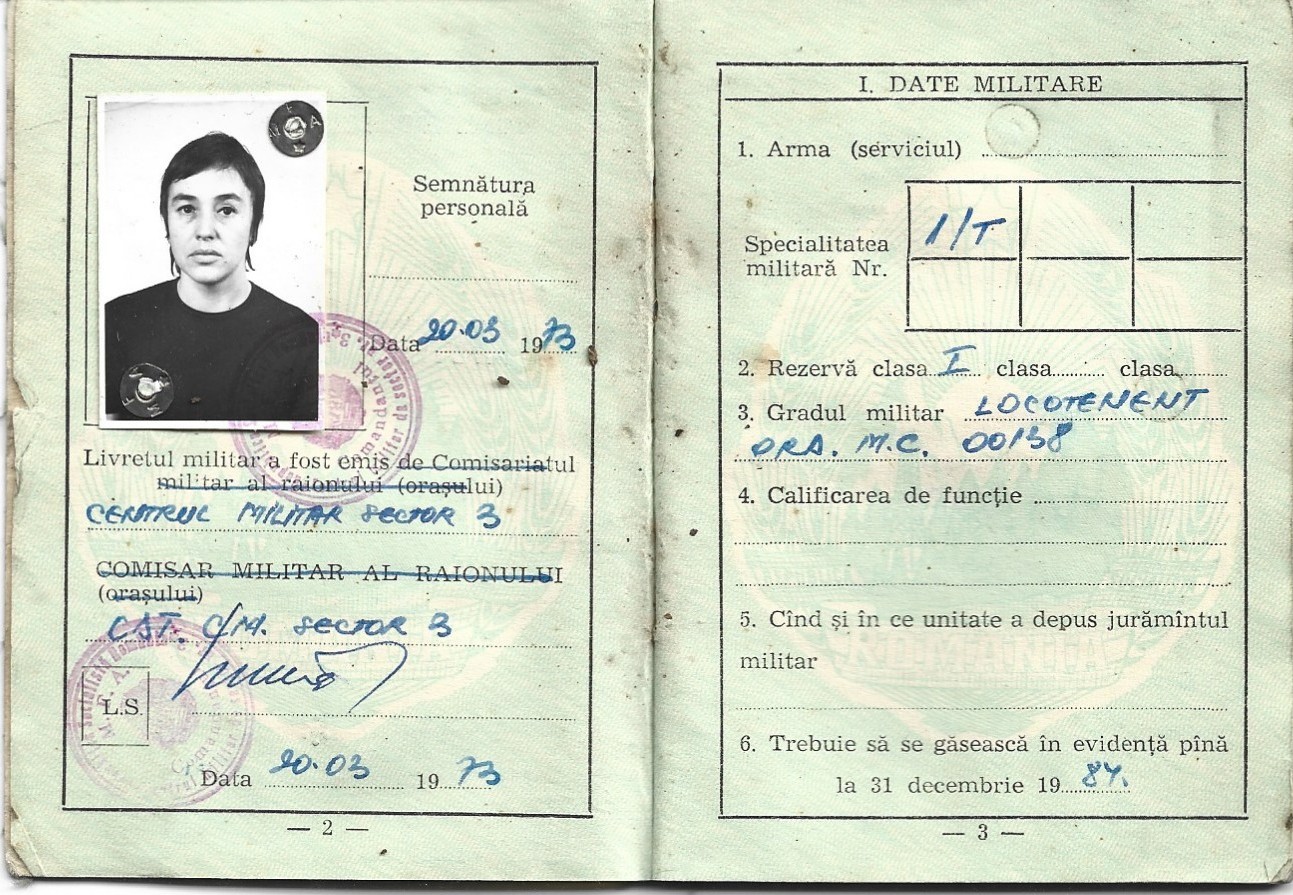 Semnătura
personală
Data 20.03 1973
Livretul militar a fost emis de Comisariatul
militar al raionului (orașului)
CENTRUL MILITAR SECTOR 3
COMISAR MILITAR AL RAIONULUI
(orașului)
CST. C.M. SECTOR 3
L.S.
Data 20.03 1973
— 2 —
I. DATE MILITARE
1. Arma (serviciul)
Specialitatea
militară Nr.
1/T
2. Rezervă clasa I clasa clasa
3. Gradul militar LOCOTENENT
ORA. M.C. 00138
4. Calificarea de funcție
5. Cînd și în ce unitate a depus jurămîntul
militar
6. Trebuie să se găsească în evidență pînă
la 31 decembrie 1984.
— 3 —